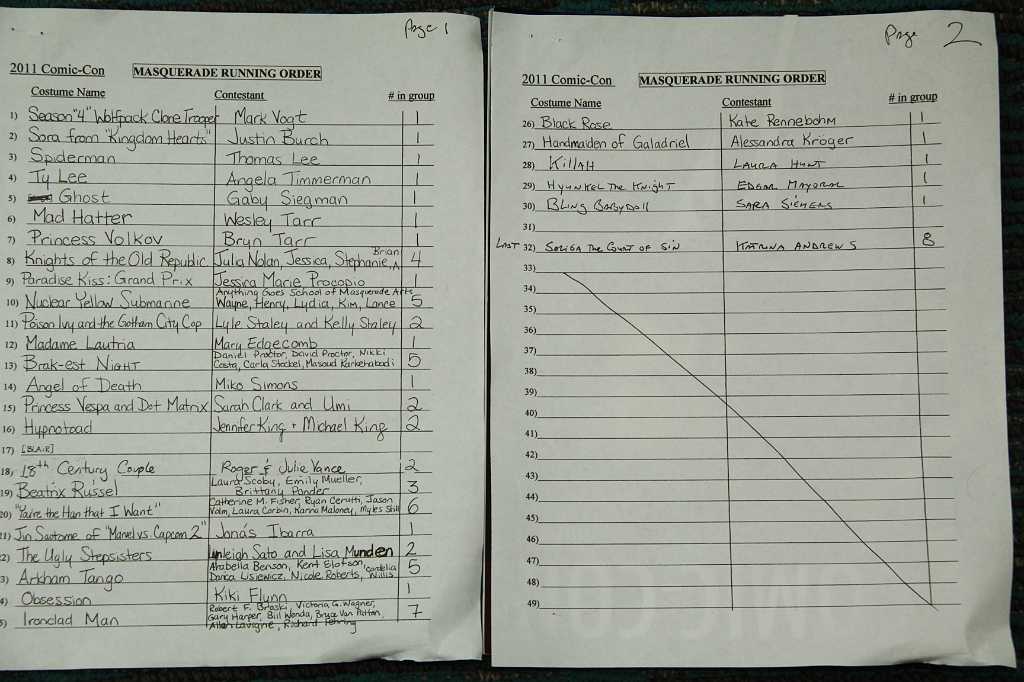 Page 1
2011 Comic-Con MASQUERADE RUNNING ORDER
Costume Name Contestant # in group
1) Season "4" Wolfpack Clone Trooper Mark Vogt 1
2) Sora from "Kingdom Hearts" Justin Burch 1
3) Spiderman Thomas Lee 1
4) Ty Lee Angela Timmerman 1
5) Ghost Gaby Siegman 1
6) Mad Hatter Wesley Tarr 1
7) Princess Volkov Bryn Tarr 1
8) Knights of the Old Republic Julia Nolan, Jessica, Stephanie, Brian 4
9) Paradise Kiss: Grand Prix Jessica Marie Procopio 1
Anything Goes School of Masquerade Arts
10) Nuclear Yellow Submarine Wayne, Henry, Lydia, Kim, Lance 5
11) Poison Ivy and the Gotham City Cop Lyle Staley and Kelly Staley 2
12) Madame Lautria Mary Edgecomb 1
Daniel Proctor, David Proctor, Nikki
13) Brak-est Night Costa, Carla Stockel, Masoud 5
14) Angel of Death Miko Simons 1
15) Princess Vespa and Dot Matrix Sarah Clark and Umi 2
16) Hypnotoad Jennifer King + Michael King 2
17) [BLAIR]
18) 18th Century Couple Roger & Julie Vance 2
Laura Scoby, Emily Mueller,
19) Beatrix Russel Brittany Ponder 3
Catherine M. Fisher, Ryan Ceruth, Jason
20) "You're the Han that I Want" Valm, Laura Corbin, Karina Maloney, Myles 6
21) Jin Saotome of "Marvel vs. Capcom 2" Jonas Ibarra 1
2) The Ugly Stepsisters Sato and Lisa Munden 2
Arabella Benson, Kent Elofson, Cordelia
3) Arkham Tango Darica Lisiewicz, Nicole Roberts, Willis 5
4) Obsession Kiki Flynn 1
Robert F. Victoria G. Wagner,
5) Ironclad Man Gary Harper, Bill Wonda, Bruce Van Patton, 7
Allan Lavigne, Richard
Page 2
2011 Comic-Con MASQUERADE RUNNING ORDER
Costume Name Contestant # in group
26) Black Rose Kate Rennebohm 1
27) Handmaiden of Galadriel Alessandra Kröger 1
28) KillAH LAURA HUNT 1
29) Hyunkel The Knight EDGAR MAYORAL 1
30) Bling Babydoll SARA SIEMENS 1
31)
LAST 32) The Count of Sin KATRINA ANDREWS 8
33)
34)
35)
36)
37)
38)
39)
40)
41)
42)
43)
44)
45)
46)
47)
48)
49)